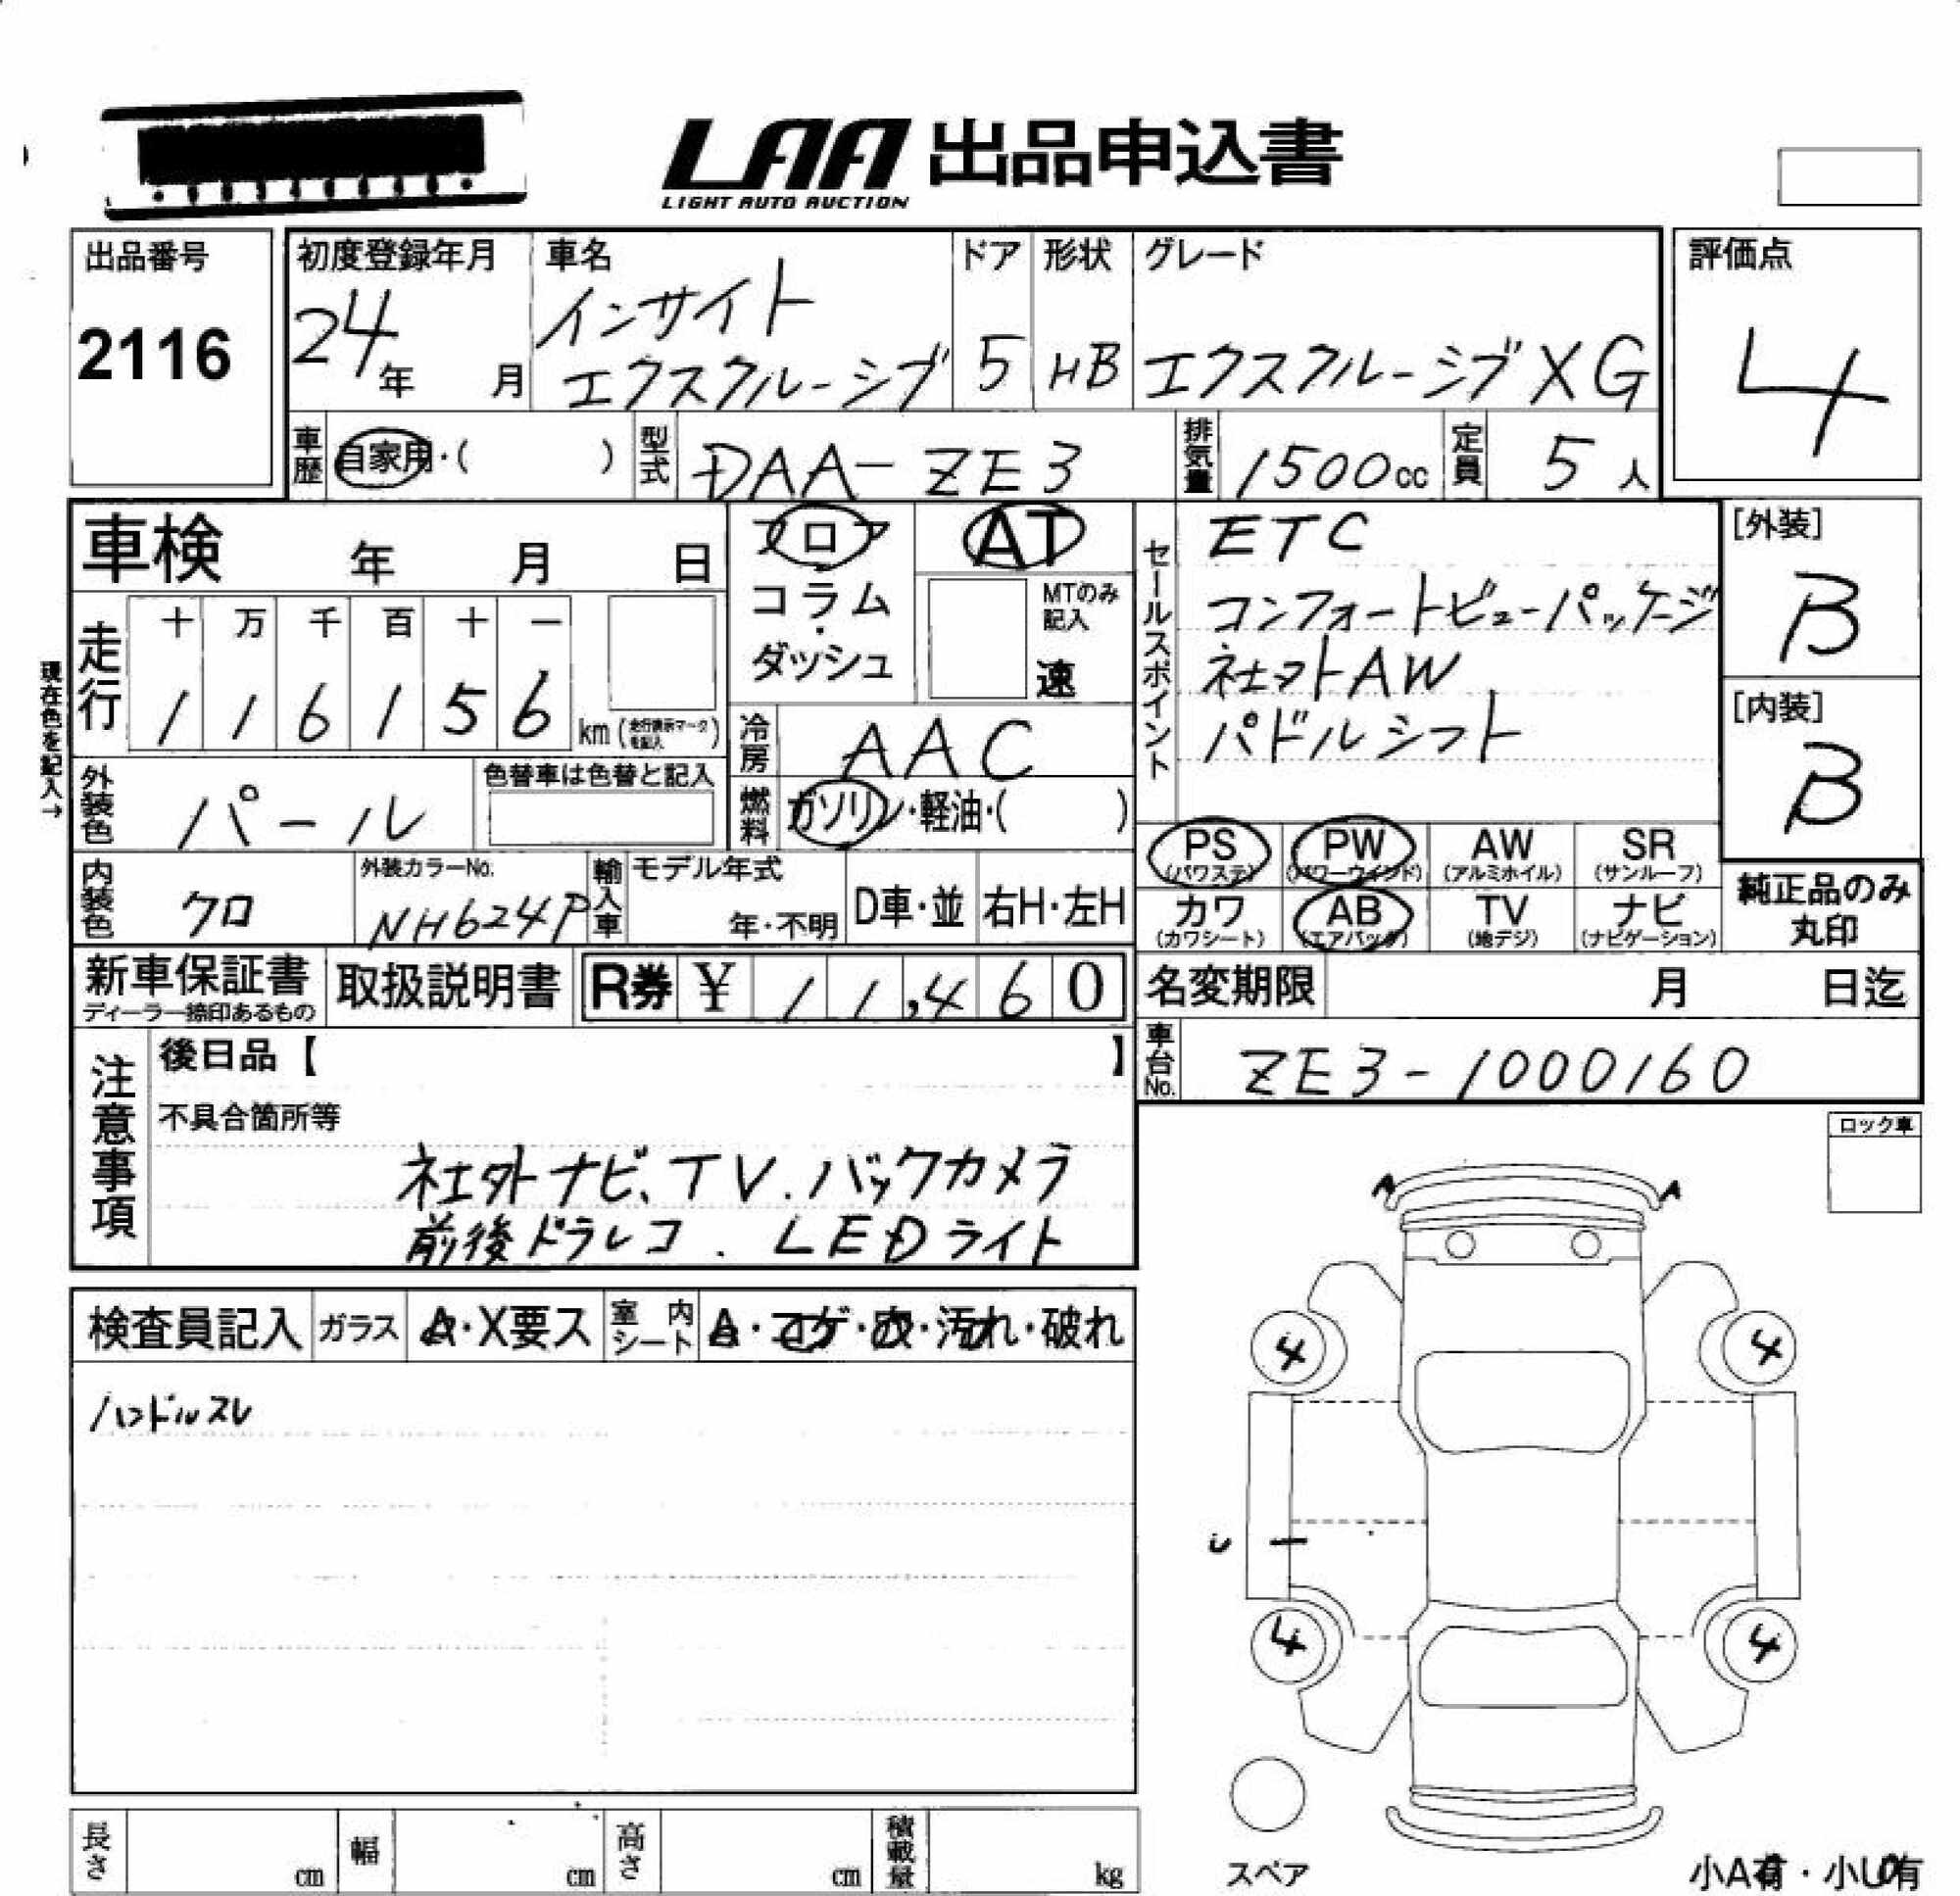 LAA 出品申込書
LIGHT AUTO AUCTION
出品番号
2116
初度登録年月
24年 月
車名
インサイト
エクスクルーシブ
ドア
5
形状
HB
グレード
エクスクルーシブXG
評価点
4
車歴 自家用・( )
型式 DAA-ZE3
排気量 1500cc
定員 5人
車検 年 月 日
現在色を記入→
走行
十 万 千 百 十 一
1 1 6 1 5 6 km(走行表示マークを記入)
フロア
コラム
・
ダッシュ
AT
MTのみ記入
速
冷房 AAC
燃料 ガソリン・軽油・( )
セールスポイント
ETC
コンフォートビューパッケージ
社外AW
パドルシフト
[外装]
B
[内装]
B
外装色 パール
色替車は色替と記入
内装色 クロ
外装カラーNo.
NH624P
輸入車
モデル年式
年・不明
D車・並
右H・左H
PS (パワステ)
PW (パワーウィンド)
AW (アルミホイル)
SR (サンルーフ)
カワ (カワシート)
AB (エアバック)
TV (地デジ)
ナビ (ナビゲーション)
純正品のみ
丸印
新車保証書
ディーラー捺印あるもの
取扱説明書
R券 ¥ 11,460
名変期限 月 日迄
車台No. ZE3-1000160
注意事項
後日品【 】
不具合箇所等
社外ナビ、TV.バックカメラ
前後ドラレコ. LEDライト
ロック車
A A
検査員記入
ガラス A・X要ス
室内シート A・コゲ・穴・汚れ・破れ
ハンドルスレ
4 4
4 4
スペア
長さ cm
幅 cm
高さ cm
積載量 kg
小A有・小U有